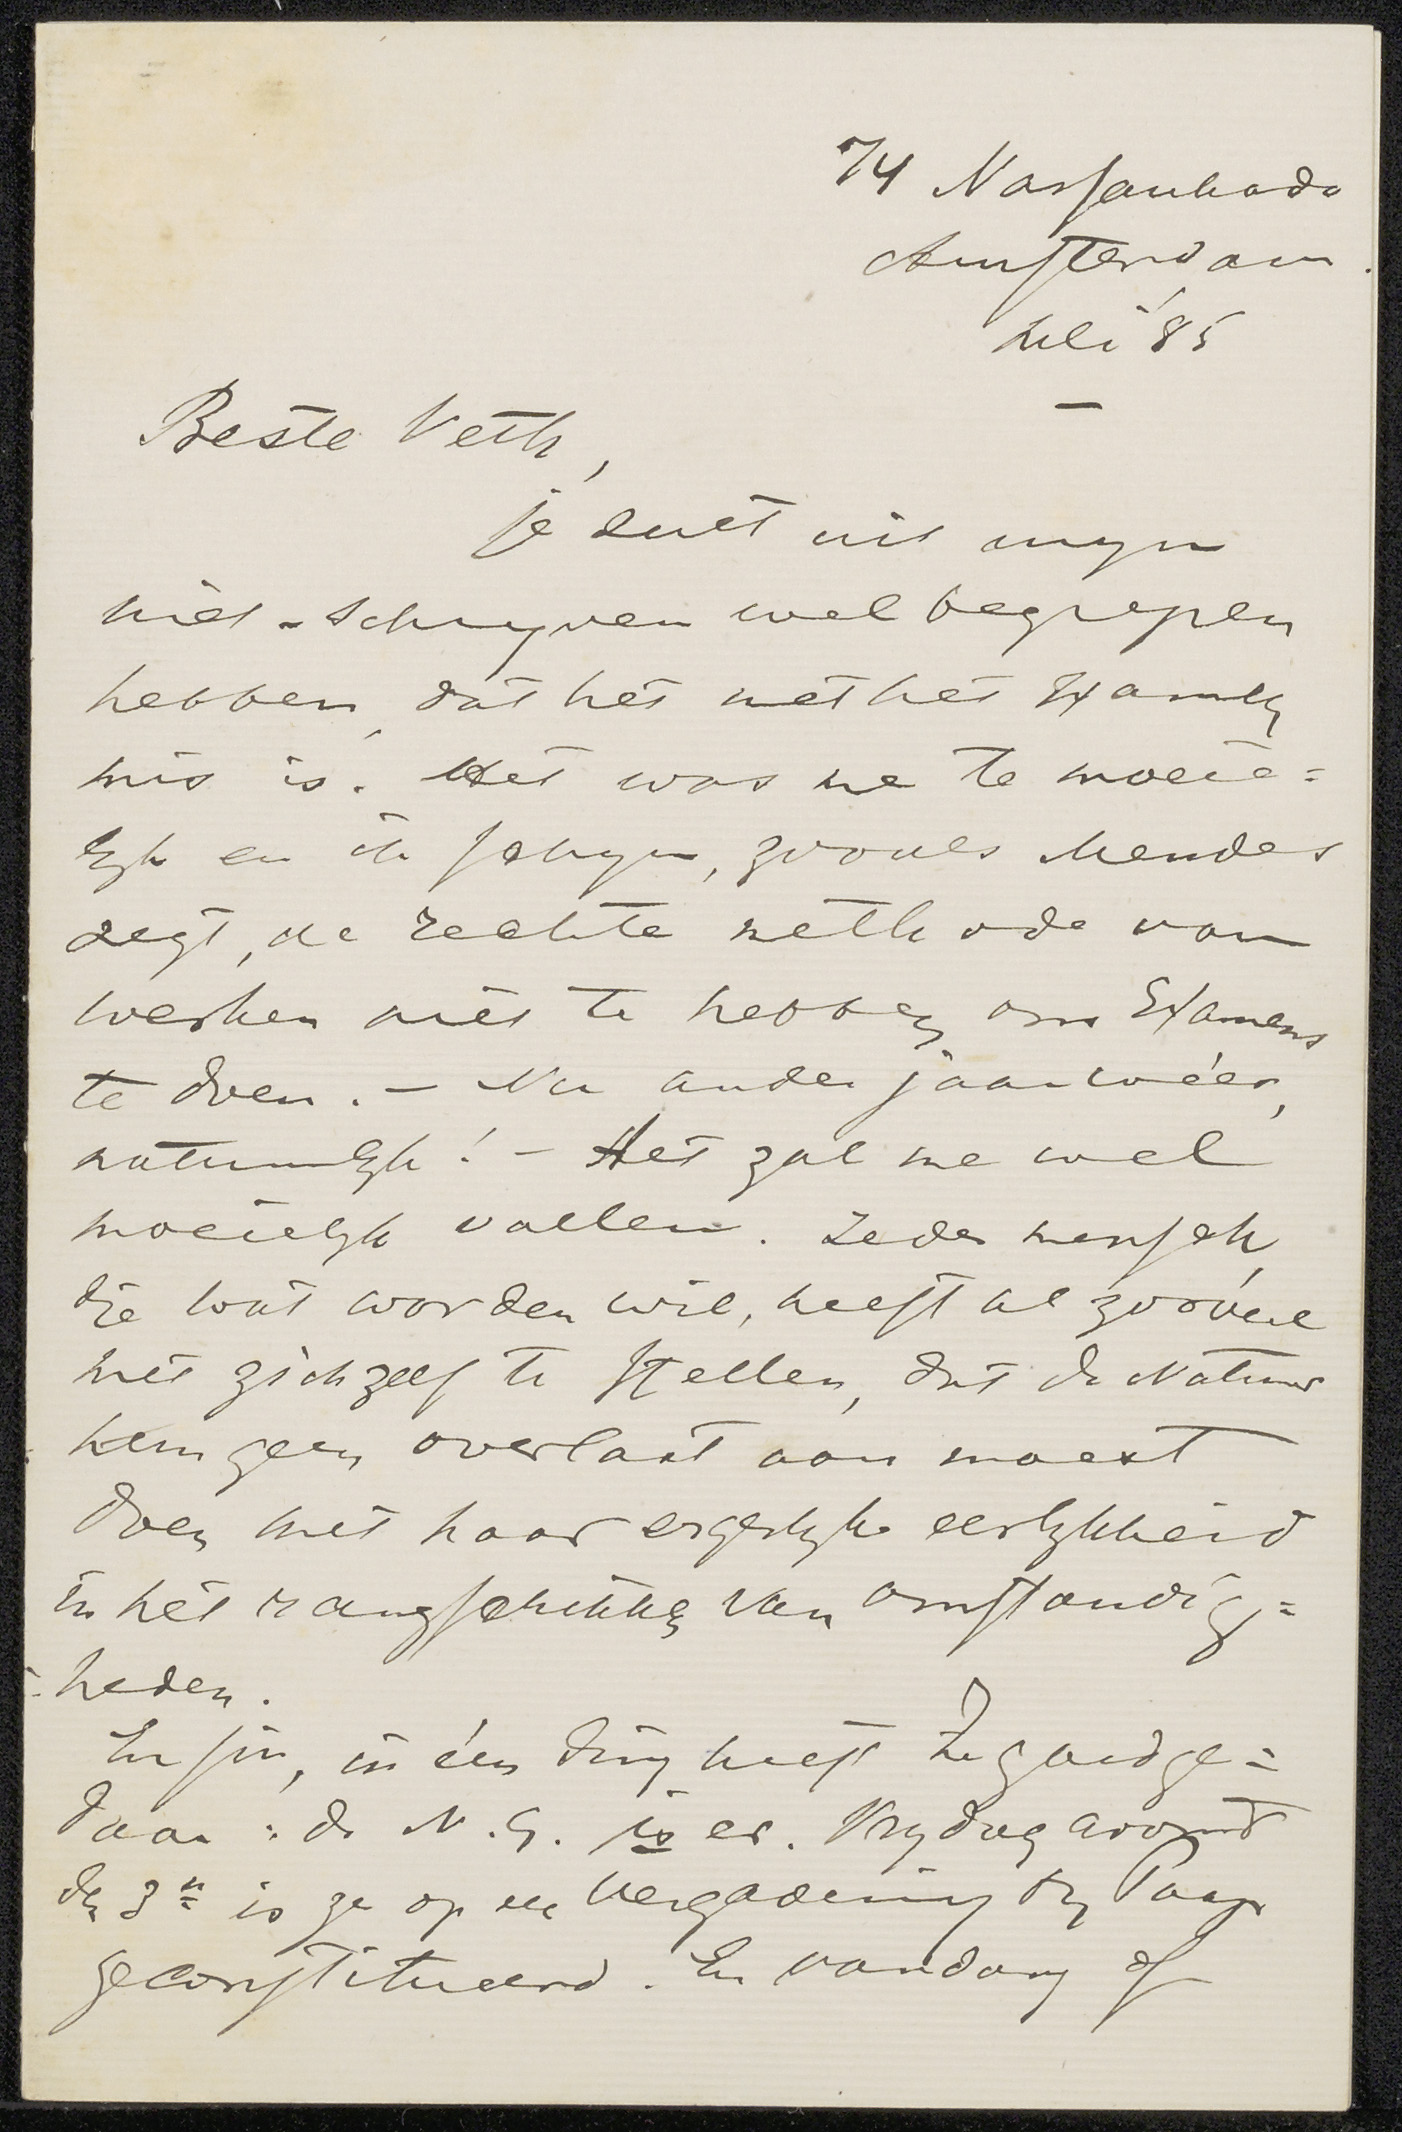 74 Nassaukade
Amsterdam.
Juli '85
—
Beste Veth,
je zult uit myn
niet-schryven wel begrepen
hebben, dat het met het Examen
mis is. Het was me te moeie=
lyk en ik schyn, zooals Mendes
zegt, de rechte methode van
werken niet te hebben om Examens
te doen. – Nu ander jaar wéer,
natuurlyk! – Het zal me wel
moeielyk vallen. Ieder mensch,
die wat worden wil, heeft al zoovéel
met zichzelf te stellen, dat de Natuur
hem geen overlast aan moest
doen met haar ergerlyke eerlykheid
in het rangschikken van omstandig=
=heden.
Enfin, in één ding heeft ze goed ge=
daan: de N.G. is er. Vrydag avond
den 3n is ze op een vergadering by Paap
geconstitueerd. En vandaag of